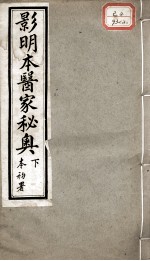 影明本醫家秘奥
下
本初署